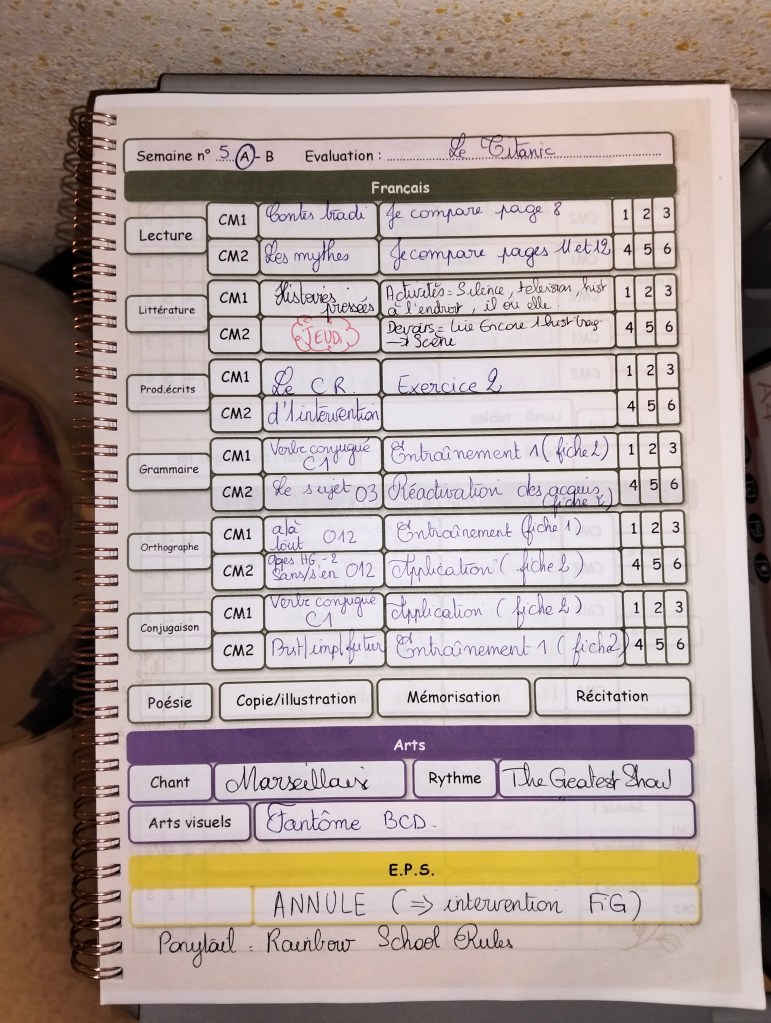 Semaine n° 5 A - B Evaluation : Le Titanic
Francais
Lecture
CM1 Contes tradi Je compare page 8 1 2 3
CM2 Les mythes Je compare pages 11 et 12 4 5 6
Littérature
CM1 Histoires pressées Activités = Silence, television, hist à l'endroit, il ou elle 1 2 3
CM2 JEUDI Devoirs = Lire Encore 1 hist → Scène 4 5 6
Prod.écrits
CM1 Le C.R. Exercice 2 1 2 3
CM2 d'1 intervention 4 5 6
Grammaire
CM1 Verbe conjugué C1 Entraînement 1 (fiche 2) 1 2 3
CM2 Le sujet 03 Réactivation des acquis (fiche 1) 4 5 6
Orthographe
CM1 a/à tout 012 Entraînement (fiche 1) 1 2 3
CM2 Sans/s'en 012 Application (fiche 2) 4 5 6
Conjugaison
CM1 Verbe conjugué C1 Application (fiche 2) 1 2 3
CM2 Prst/imp/futur Entraînement 1 (fiche 2) 4 5 6
Poésie Copie/illustration Mémorisation Récitation
Arts
Chant Marseillais Rythme The Greatest Show
Arts visuels Fantôme BCD.
E.P.S.
ANNULE (⇒ intervention FiG)
Ponytail : Rainbow School Rules